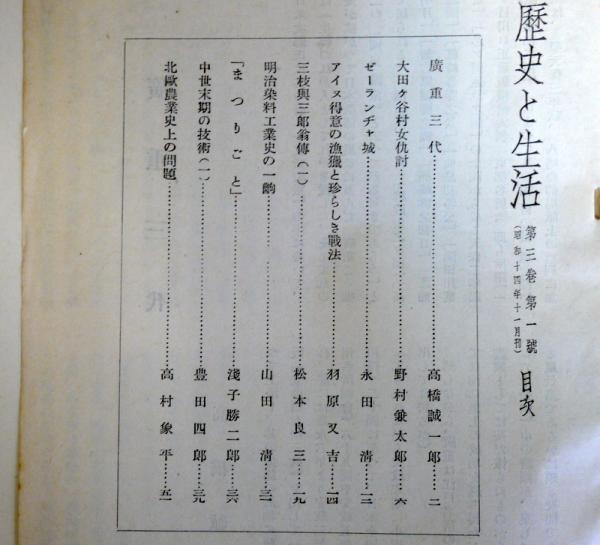 歷史と生活 第三卷第一號 (昭和十四年十一月刊) 目次
廣重三代……高橋誠一郎……二
大田ケ谷村女仇討……野村兼太郎……六
ゼーランヂャ城……永田淸……一二
アイヌ得意の漁獵と珍らしき戰法……羽原又吉……一四
三枝與三郎翁傳(一)……松本良三……一九
明治染料工業史の一齣……山田淸……三一
「まつりごと」……淺子勝二郎……三六
中世末期の技術(一)……豊田四郎……三九
北歐農業史上の問題……高村象平……五一